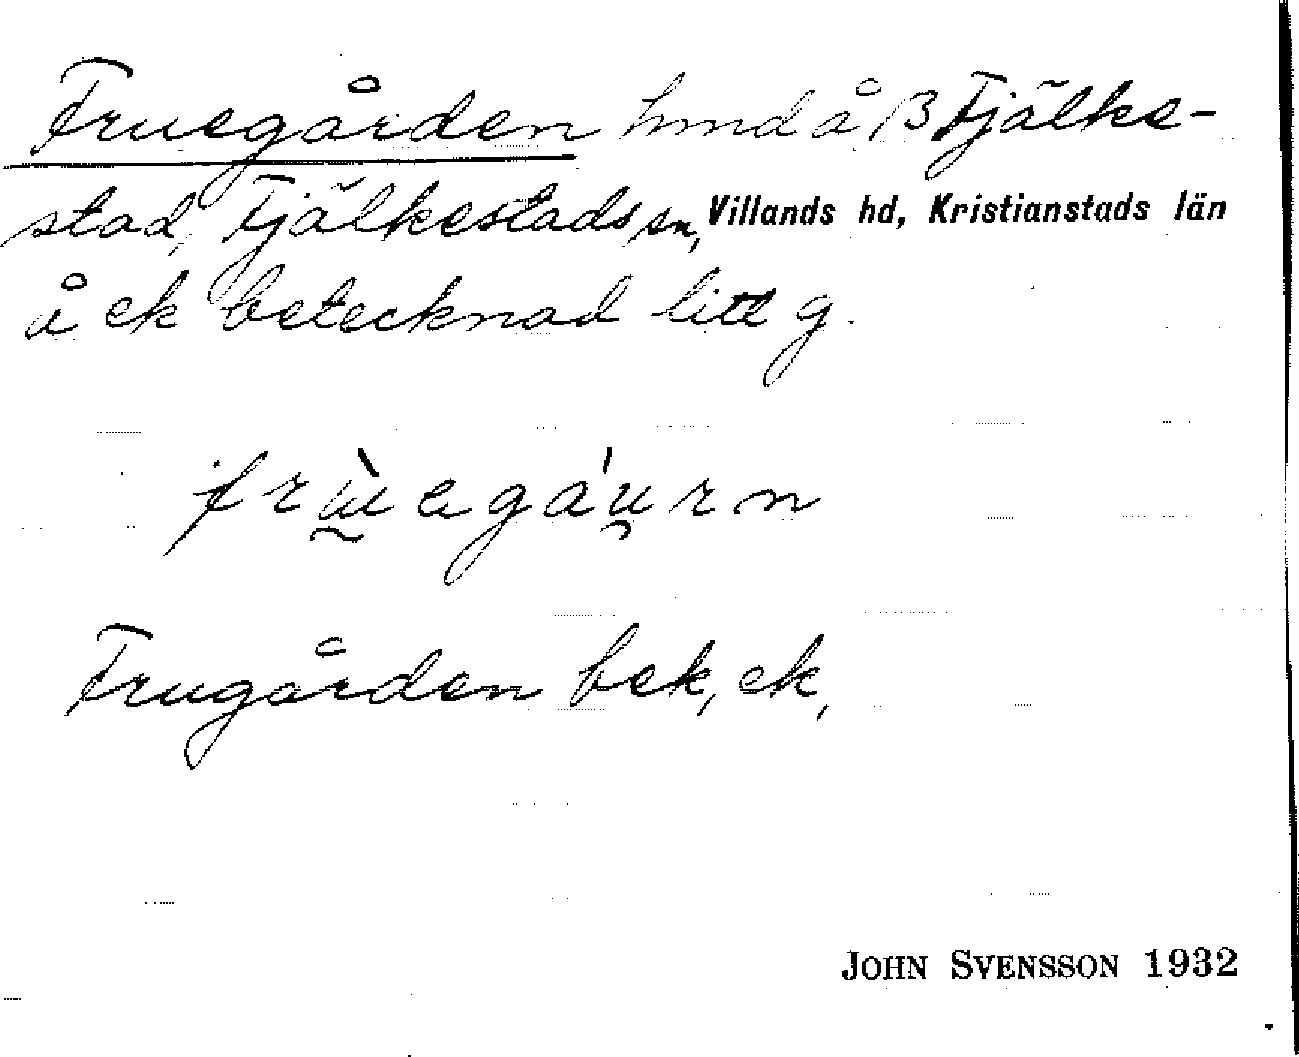 Fruegården hmd å /3 Fjälke-
stad, Fjälkestads sn, Villands hd, Kristianstads län
å ek betecknad litt g.
frùegáurn
Frugården bek, ek,
JOHN SVENSSON 1932